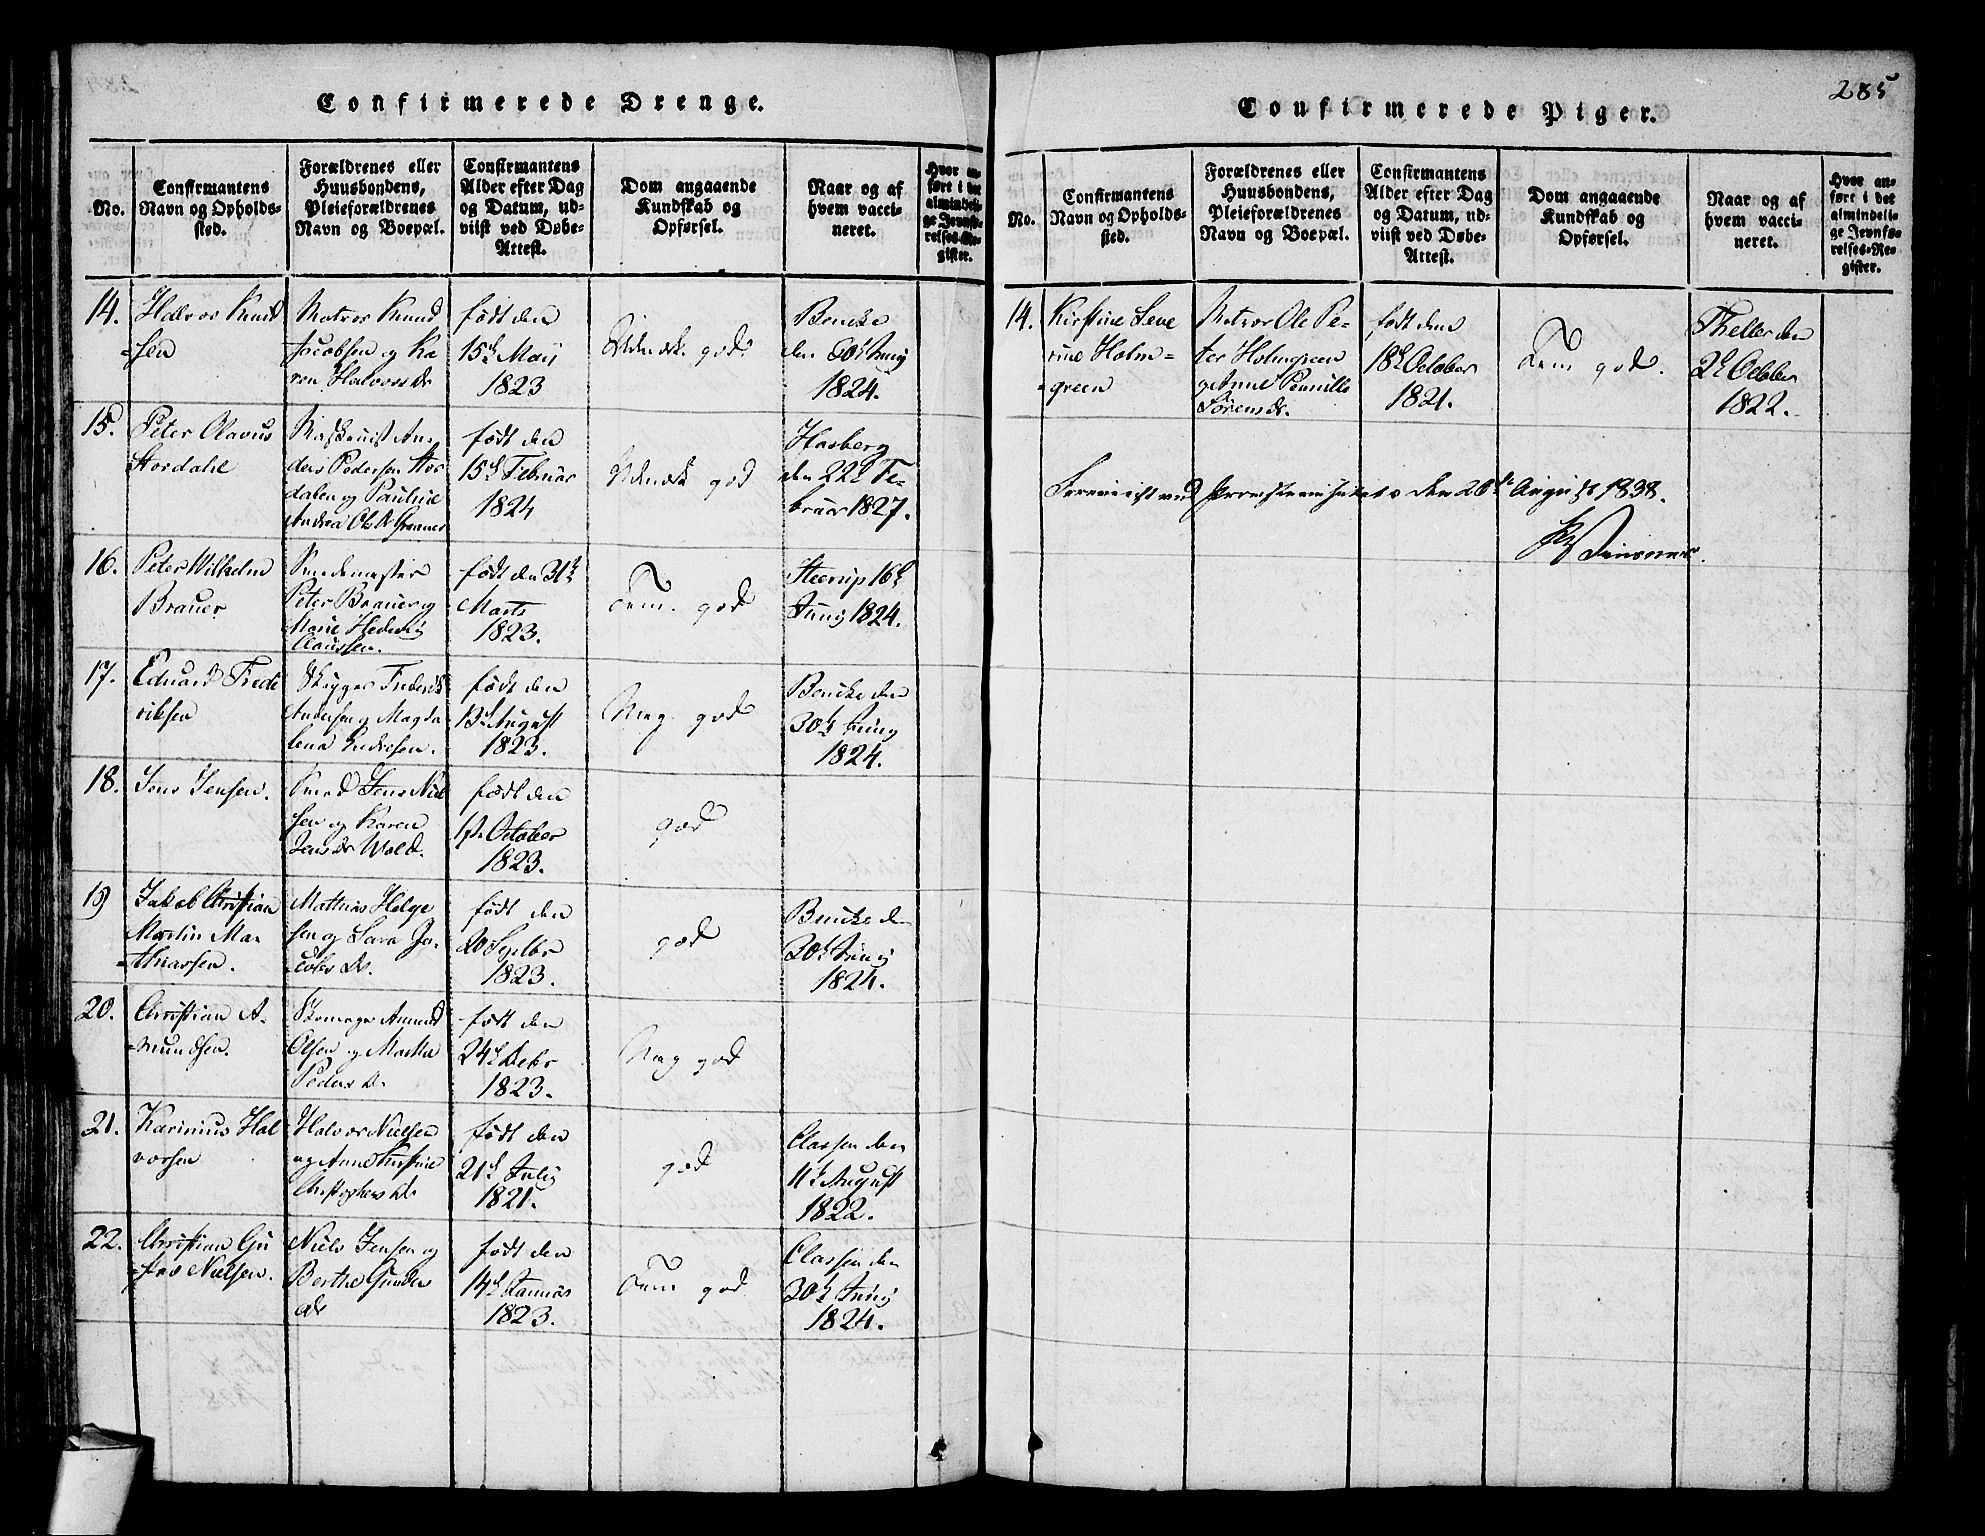 Confirmerede Drenge.
No.
Confirmantens
Navn og Opholds-
sted.
Forældrenes eller
Huusbondens,
Pleieforældrenes
Navn og Boepæl.
Confirmantens
Alder efter Dag
og Datum, ud-
viist ved Døbe-
Attest.
Dom angaaende
Kundskab og
Opførsel.
Naar og af
hvem vacci-
neret.
Hvor an-
ført i det
almindeli-
ge Jevnfø-
relses-Re-
gister.
14.
Halvor Knud
sen
Matros Knud
Jacobsen og Ka
ren Halvorsdr
født den
15de Maij
1823
Udmerk. god
Bencke
den 30te Junij
1824.
15.
Peter Olavus
Stordahl
An-
ders Pedersen Stor
dalen og Pauline
Andrea Olsdr
født den
15de Februar
1824
Udmerk god
Hasberg
den 22de Fe-
bruar 1827.
16.
Peter Wilhelm
Brauer
Smedemester
Peter Brauer og
Marie Hedevig
Claussen.
født den 31te
Marts
1823.
Tem. god
Steenrup 16de
Junij 1824.
17.
Eduard Frede
riksen
Frederik
Andersen og Magda
lena Endresen.
født den
13de August
1823.
Meg. god
Bencke den
30te Junij
1824.
18.
Jens Jensen.
Smed Jens Niel
sen og Karen
Jensdr Wold.
født den
1ste October
1823.
god
19
Jakob Christian
Martin Ma-
thiassen.
Mathias Helge
sen og Sara Ja-
cobsdr.
født den
20 Septbr
1823.
god
Bencke den
30te Junij
1824.
20.
Christian A-
mundsen.
Skomager Amund
Olsen og Marthe
Pedersdr.
født den
24de Decbr
1823.
Meg god
21.
Karinius Hal
vorsen
Halvor Nielsen
og Anne Kirstine
Christophersdr.
født den
21de Julij
1821.
god
Classen den
11te August
1822.
22.
Christian Gu
stav Nielsen.
Niels Jensen og
Berthe Gunders
dr
født den
14de Januar
1823.
Tem god
Classen den
30te Junij
1824.
Confirmerede Piger.
285
No.
Confirmantens
Navn og Opholds-
sted.
Forældrenes eller
Huusbondens,
Pleieforældrenes
Navn og Boepæl.
Confirmantens
Alder efter Dag
og Datum, ud-
viist ved Døbe-
Attest.
Dom angaaende
Kundskab og
Opførsel.
Naar og af
hvem vacci-
neret.
Hvor an-
ført i det
almindeli-
ge Jevnfø-
relses-Re-
gister.
14.
Kirstine Seve
rine Holm-
green
Matros Ole Pe-
ter Holmgreen
og Anne Pernille
Sørensdr.
født den
18de October
1821.
Tem god.
Theller den
2de October
1822.
Foreviist ved Provstevisitats den 20de August 1838.